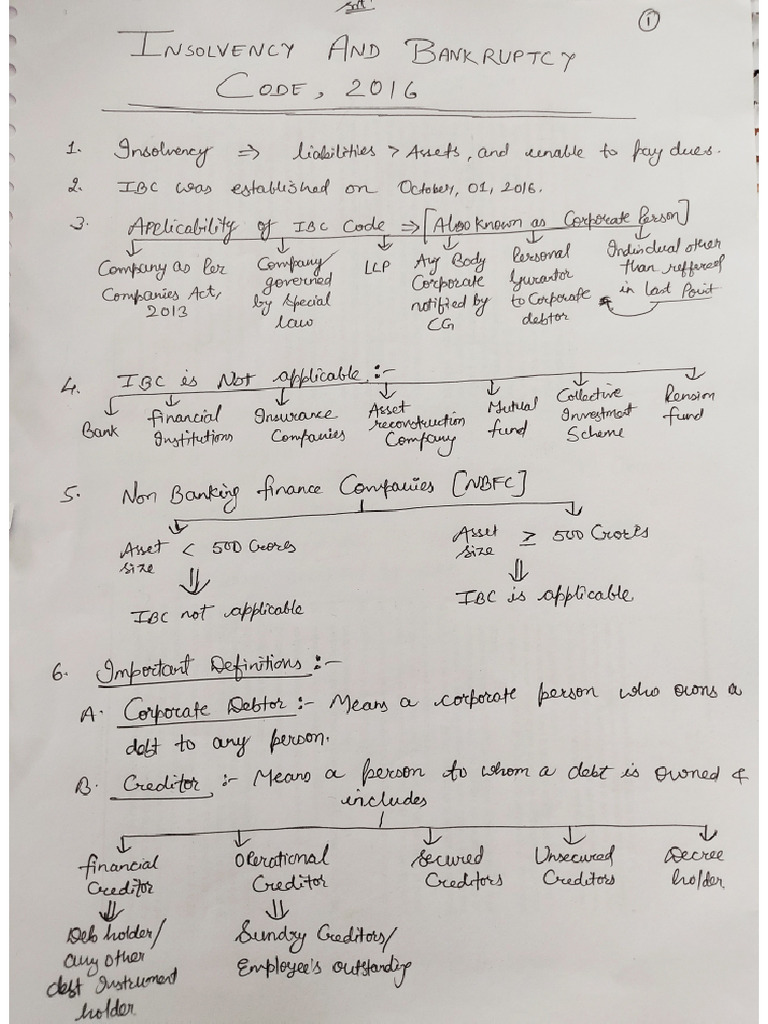 ①
INSOLVENCY AND BANKRUPTCY
CODE, 2016
1. Insolvency ⇒ liabilities > Assets, and unable to pay dues.
2. IBC was established on October, 01, 2016.
3. Applicability of IBC Code ⇒ [Also known as Corporate Person]
Company as Per
Companies Act,
2013
Company
governed
by special
law
LLP
Any Body
Corporate
notified by
CG
Personal
Gurantor
to Corporate
debtor
Individual other
than reffered
in last Point
4. IBC is Not applicable :-
Bank
financial
Institutions
Insurance
Companies
Asset
reconstruction
Company
Mutual
fund
Collective
Investment
Scheme
Pension
fund
5. Non Banking finance Companies [NBFC]
Asset
size < 500 Crores
⇓
IBC not applicable
Asset
size ≥ 500 Crores
⇓
IBC is applicable
6. Important Definitions :-
A. Corporate Debtor :- Means a corporate person who owns a
debt to any person.
B. Creditor :- Means a person to whom a debt is owned &
includes
financial
Creditor
⇓
Deb holder/
any other
debt Instrument
holder.
Operational
Creditor
⇓
Sundry Creditors/
Employee's outstanding
Secured
Creditors
Unsecured
Creditors
Decree
holder.